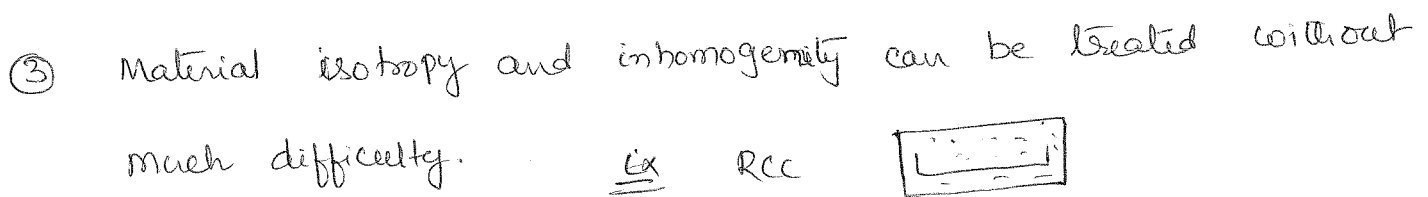 ③ Material isotropy and inhomogenity can be treated without
much difficulty. Ex RCC